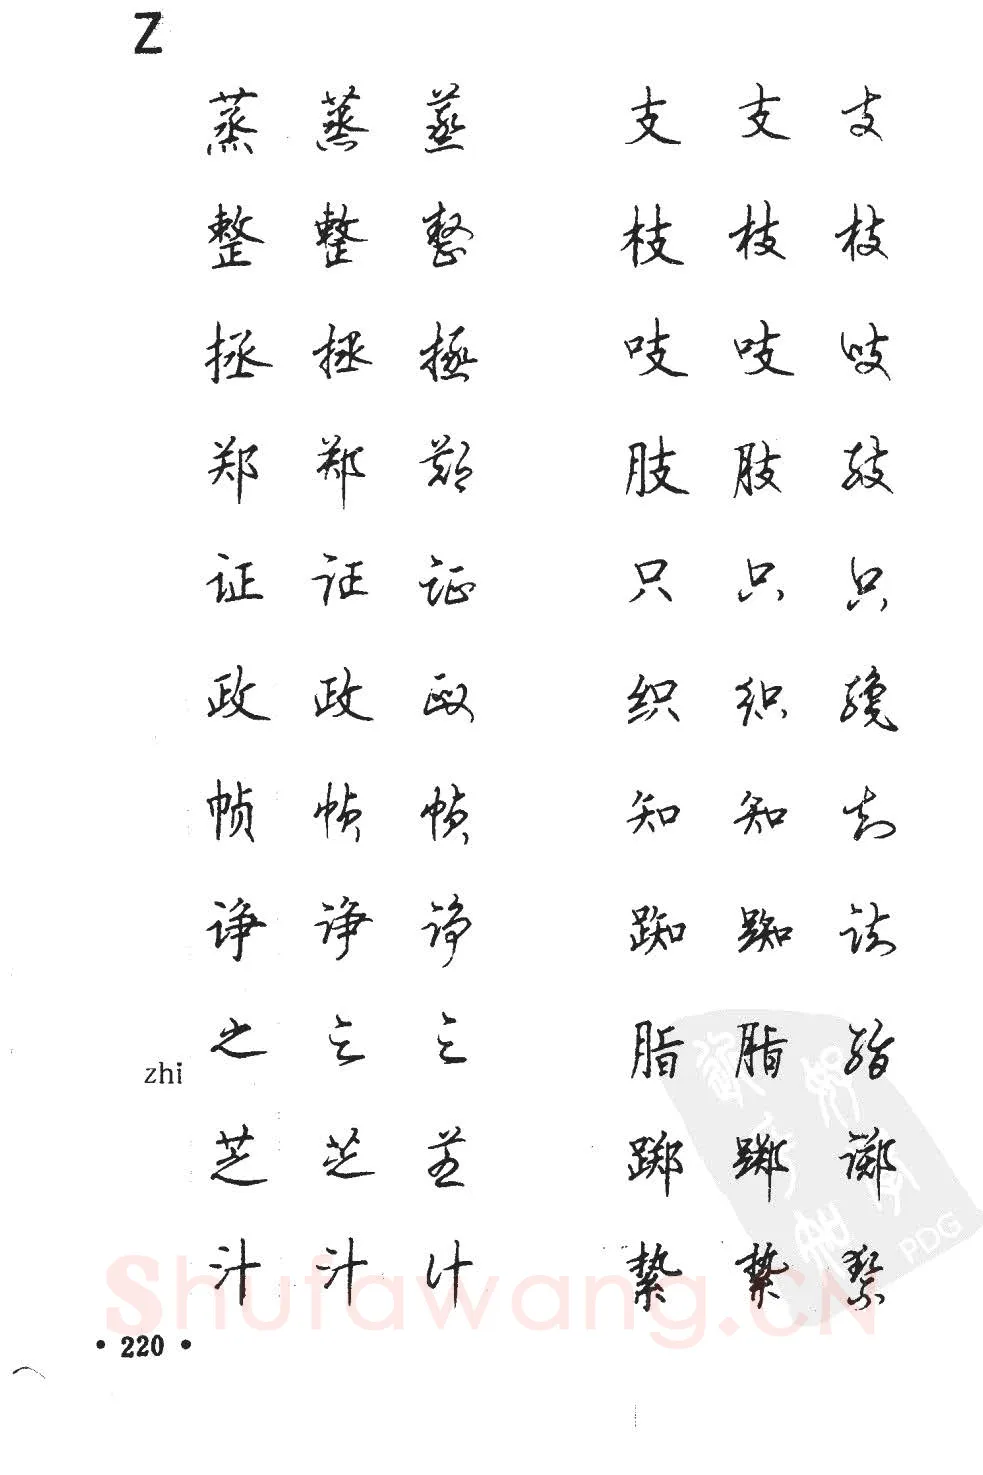 Z
蒸 蒸 蒸 支 支 支
整 整 整 枝 枝 枝
拯 拯 拯 吱 吱 吱
郑 郑 郑 肢 肢 肢
证 证 证 只 只 只
政 政 政 织 织 织
帧 帧 帧 知 知 知
诤 诤 诤 踟 踟 踟
之 之 之 脂 脂 脂
zhi
芝 芝 芝 踯 踯 踯
汁 汁 汁 絷 絷 絷
PDG
Shufawang.CN
• 220 •